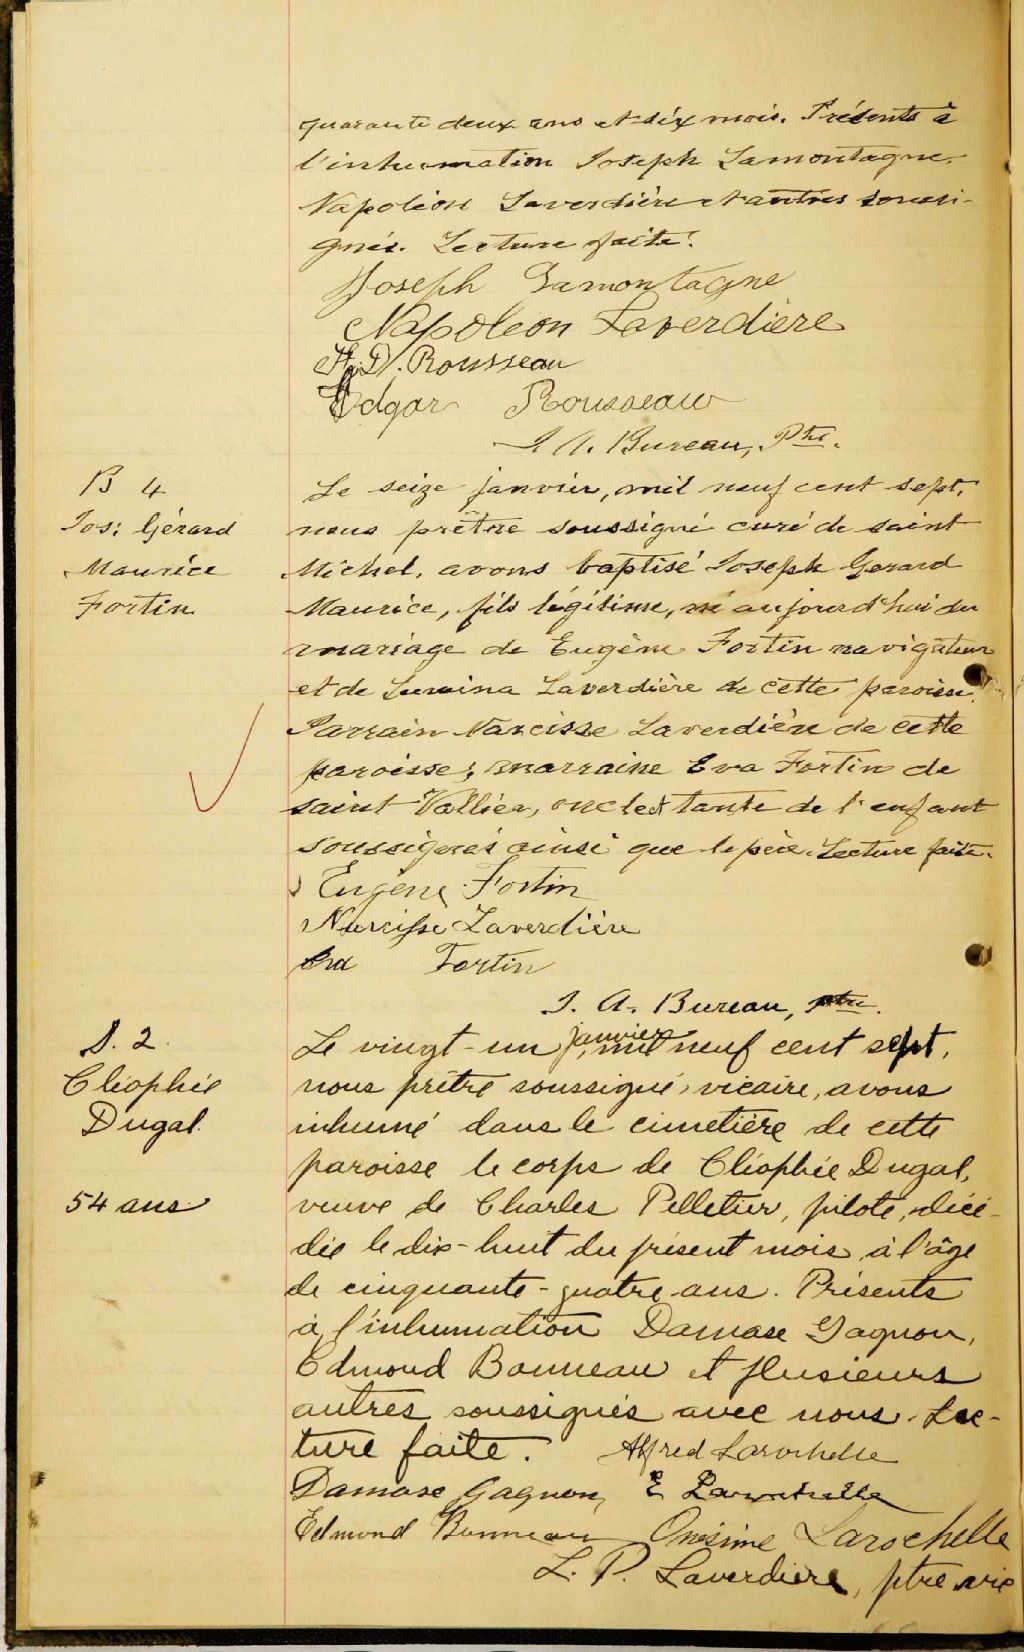 quarante deux ans et six mois. Présents à
l'inhumation Joseph Lamontagne
Napoléon Laverdière et autres soussi-
gnés. Lecture faite.
Joseph Lamontagne
Napoleon Laverdière
D. Rousseau
Edgar Rousseau
J. A. Bureau, Ptre.
B 4
Jos: Gérard
Maurice
Fortin
Le seize janvier, mil neuf cent sept,
nous prêtre soussigné curé de saint
Michel, avons baptisé Joseph Gerard
Maurice, fils légitime, né aujourd'hui du
mariage de Eugène Fortin navigateur
et de Laverdière de cette paroisse.
Parrain Narcisse Laverdière de cette
paroisse; marraine Eva Fortin de
saint Vallier, oncle et tante de l'enfant
soussignés ainsi que le père. Lecture faite.
Eugène Fortin
Narcisse Laverdière
Eva Fortin
J. A. Bureau, ptre.
S. 2.
Cléophée
Dugal.
54 ans
Le vingt-un janvier, mil neuf cent sept,
nous prêtre soussigné, vicaire, avons
inhumé dans le cimetière de cette
paroisse le corps de Cléophée Dugal,
veuve de Charles Pelletier, pilote, décé-
dée le dix-huit du présent mois à l'âge
de cinquante-quatre ans. Présents
à l'inhumation Damase Gagnon,
Edmond Bonneau et plusieurs
autres soussignés avec nous. Lec-
ture faite. Alfred Larochelle
Damase Gagnon, E Larochelle
Edmond Bonneau Onésime Larochelle
L. P. Laverdière, ptre vic